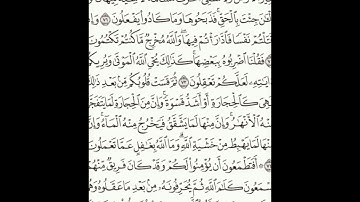 جِئْتَ بِٱلْحَقِّ فَذَبَحُوهَا وَمَا كَادُوا۟ يَفْعَلُونَ ٧١
نَفْسًا فَٱدَّٰرَْٰٔتُمْ فِيهَا وَٱللَّهُ مُخْرِجٌ مَّا كُنتُمْ تَكْتُمُونَ
فَقُلْنَا ٱضْرِبُوهُ بِبَعْضِهَا كَذَٰلِكَ يُحْىِ ٱللَّهُ ٱلْمَوْتَىٰ وَيُرِيكُمْ
ءَايَٰتِهِۦ لَعَلَّكُمْ تَعْقِلُونَ ٧٣ ثُمَّ قَسَتْ قُلُوبُكُم مِّنۢ بَعْدِ
هِىَ كَٱلْحِجَارَةِ أَوْ أَشَدُّ قَسْوَةً وَإِنَّ مِنَ ٱلْحِجَارَةِ لَمَا يَتَفَجَّرُ
مِنْهُ ٱلْأَنْهَٰرُ وَإِنَّ مِنْهَا لَمَا يَشَّقَّقُ فَيَخْرُجُ مِنْهُ ٱلْمَآءُ وَإِنَّ
مِنْهَا لَمَا يَهْبِطُ مِنْ خَشْيَةِ ٱللَّهِ وَمَا ٱللَّهُ بِغَٰفِلٍ عَمَّا تَعْمَلُونَ
أَفَتَطْمَعُونَ أَن يُؤْمِنُوا۟ لَكُمْ وَقَدْ كَانَ فَرِيقٌ مِّنْهُمْ
يَسْمَعُونَ كَلَٰمَ ٱللَّهِ ثُمَّ يُحَرِّفُونَهُۥ مِنۢ بَعْدِ مَا عَقَلُوهُ وَهُمْ